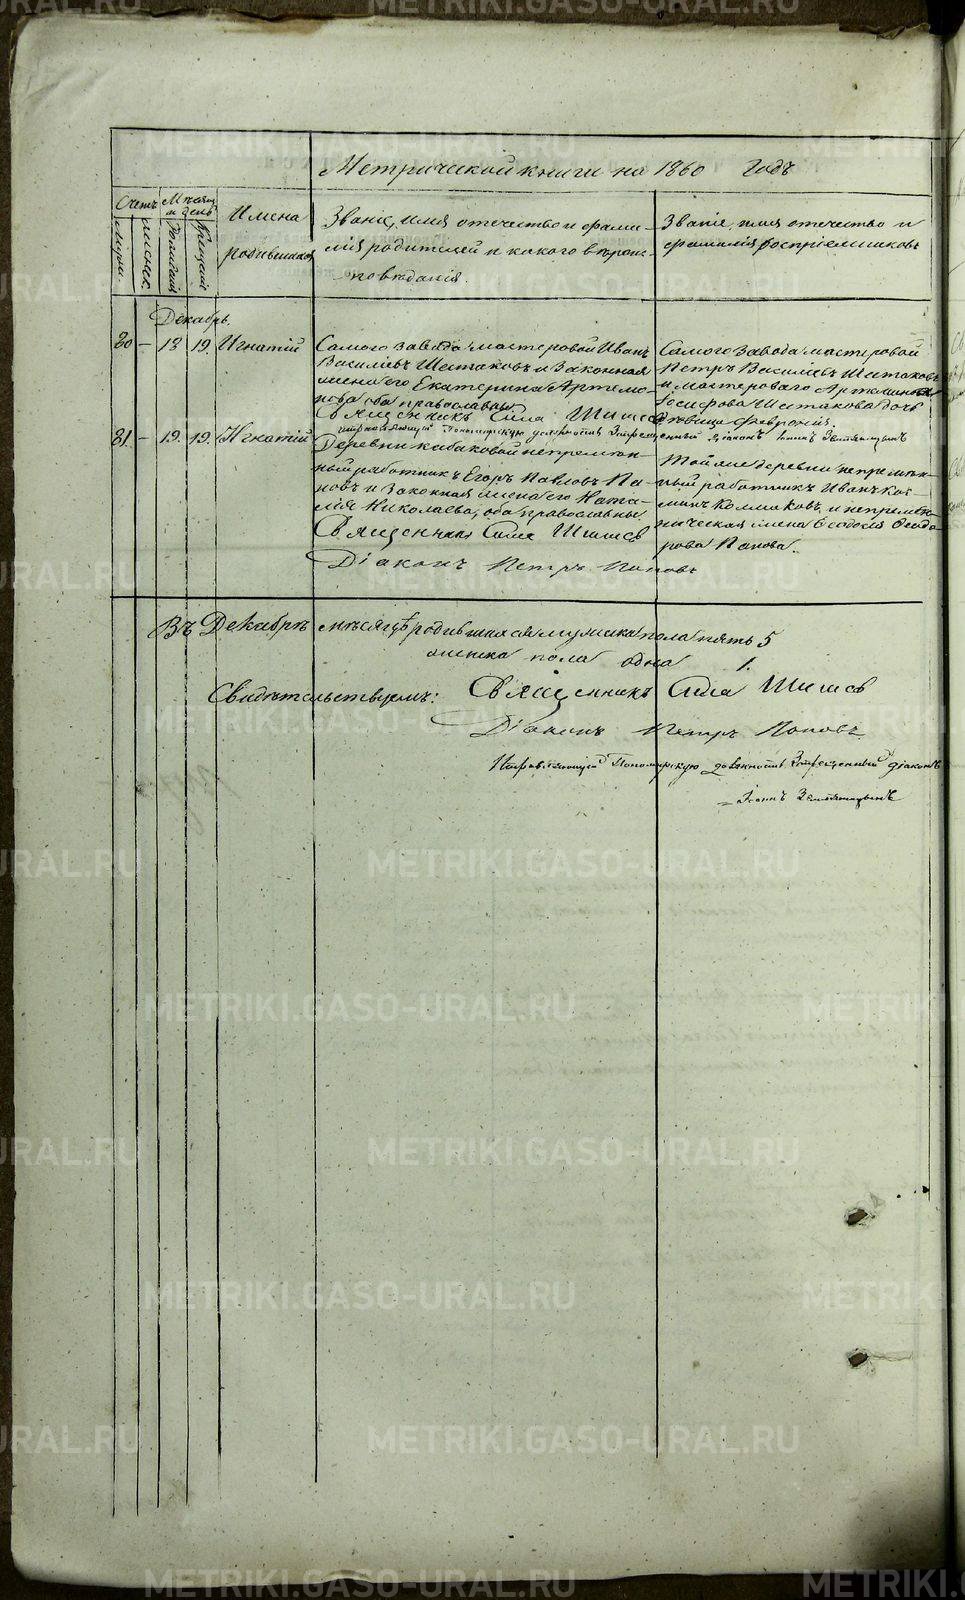 Метрической книги на 1860 Годъ
Счетъ
Мѣсяцъ и день
Имена родившихся
Званіе, имя отечество и фами-
лія родителей и какого вѣроис-
повѣданія.
Званіе, имя отечество и
фамилія воспріемниковъ
Мужес.
женск.
рожденія
крещенія
Декабрь.
80 — 18 19. Игнатій
Самого завода мастеровой Иванъ
Василіевъ Шитаковъ и законная
жена его Екатерина Артемо-
нова оба православны
Священникъ Сила Шишев
Самого завода мастеровой
Петръ Василіевъ Шитаковъ
и мастероваго
Іосифова Шитакова дочь
дѣвица Февронія.
исправляющій Пономарскую должность Запрещенный діаконъ
81 — 19. 19. Игнатій
Деревни кабаковой непремѣн-
ный работникъ Егоръ Павловъ По-
повъ и законная жена его Ната-
лія Николаева, оба православны.
Священникъ Сила Шишев
Діаконъ Петръ Поповъ
Той же деревни непремѣн-
ный работникъ Иванъ Коз-
минъ и непремѣн-
ническая жена Феодосія Феодо-
рова Попова.
Въ Декабрѣ мѣсяцѣ родившихся мужска пола пять 5
женска пола одна 1.
Свидѣтельствуемъ: Священникъ Сила Шишев
Діаконъ Петръ Поповъ
Исправляющій Пономарскую должность Запрещенный діаконъ
Іоанъ
METRIKI.GASO-URAL.RU